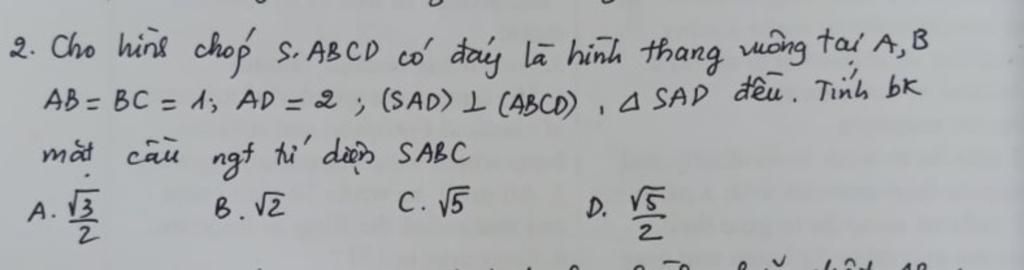 2. Cho hình chóp S.ABCD có đáy là hình thang vuông tại A, B
AB = BC = 1; AD = 2 ; (SAD) ⊥ (ABCD) , Δ SAD đều. Tính bk
mặt cầu ngt tứ diện SABC
A. √3/2 B. √2 C. √5 D. √5/2